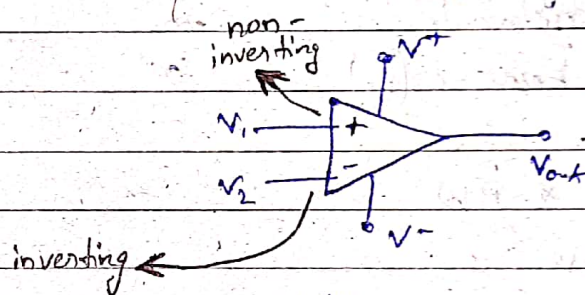 non-
inverting
V+
V1
+
-
V2
Vout
V-
inverting